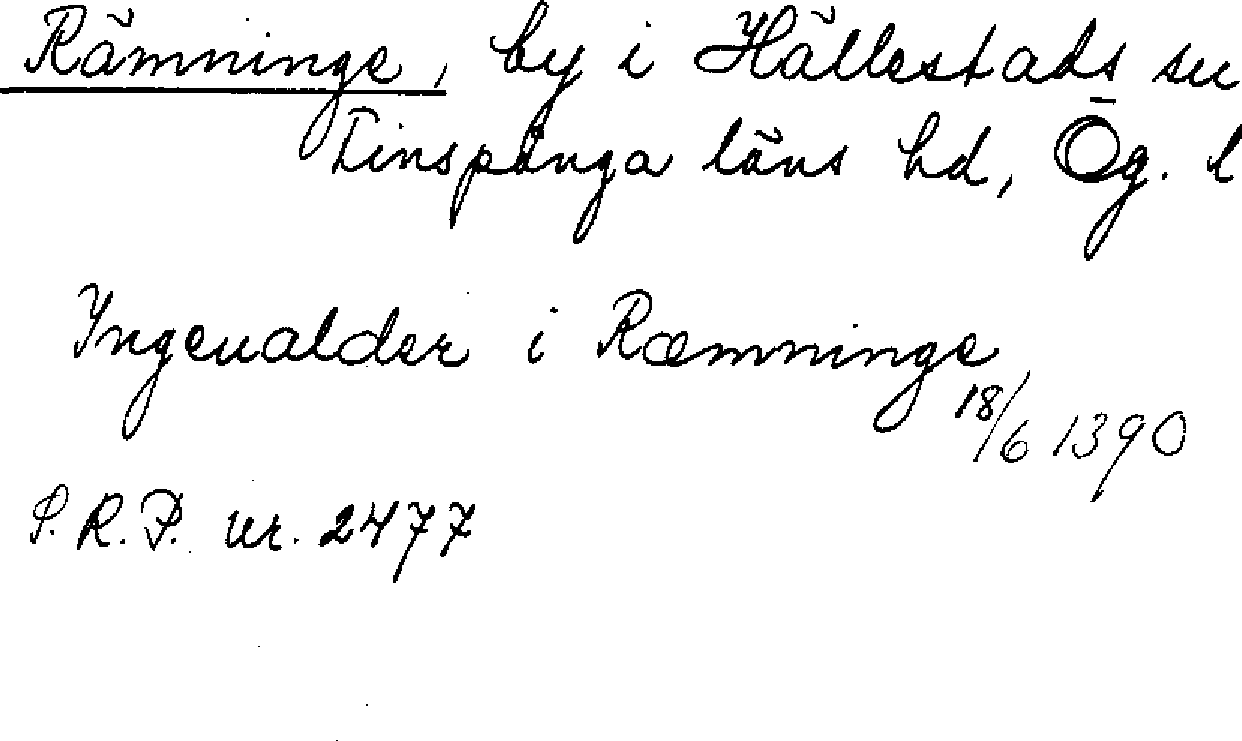 Rämninge, by i Hällestads sn
Finspånga läns hd, Ög. l
Yngeualder i Ræmninge
18/6 1390
S.R.P. nr. 2477